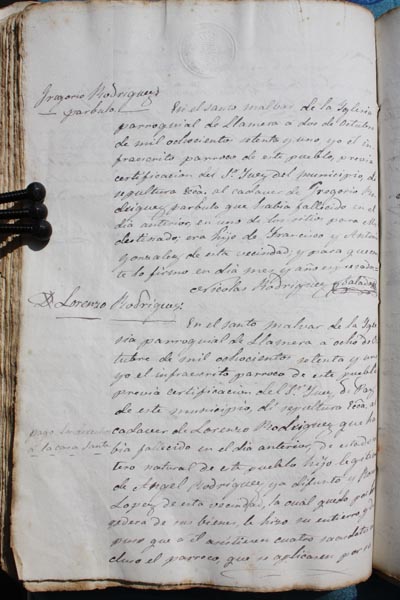 Gregorio Rodriguez
parbulo
En el santo malvar de la Iglesia
parroquial de Llamera a dos de Octubre
de mil ochocientos setenta y uno yo el in
frascrito parroco de este pueblo, previa
certificacion del Sr. Juez del municipio, di
sepultura Ecca. al cadaver de Gregorio Ro
driguez parbulo que habia fallecido en el
dia anterior, en uno de los sitios para
destinado; era hijo de Francisco y Antonia
Gonzalez de esta vecindad; y para que
te lo firmo en dia mes y año
Nicolas Rodriguez
D. Lorenzo Rodriguez
En el santo malvar de la Igle
sia parroquial de Llamera a ocho de Oc
tubre de mil ochocientos setenta y uno
yo el infrascrito parroco de este pueblo
previa certificacion del Sr. Juez de Paz
de este municipio, di sepultura Ecca. al
cadaver de Lorenzo Rodriguez que ha
bia fallecido en el dia anterior, de estado
tero natural de este pueblo hijo legitimo
de Angel Rodriguez, ya difunto y
Lopez de esta vecindad, la cual quedo por
redera de sus bienes, le hizo su entierro y
puso que a él asistiesen cuatro sacerdotes
cluso el parroco, que se aplicasen por
pago
a la casa Santa